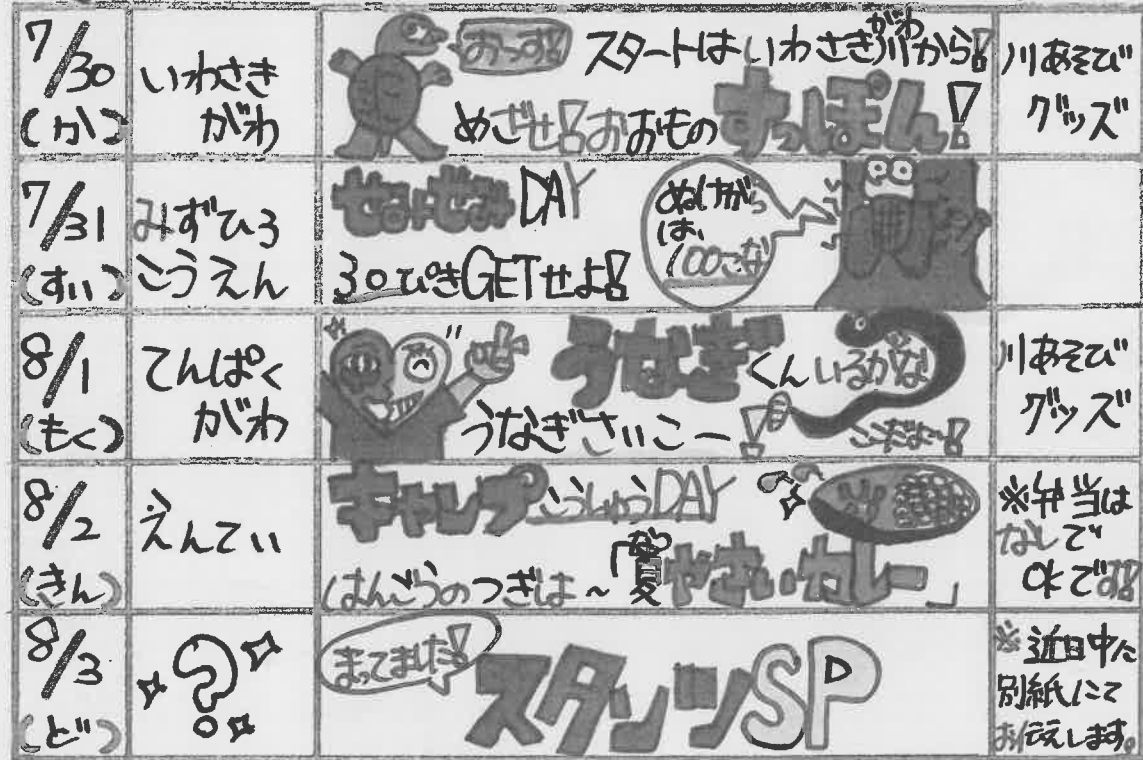 7/30
(か)
いわさき
がわ
おっす!!
スタートはいわさき川から!!
がわ
めざせ!!おおもの すっぽん!
川あそび
グッズ
7/31
(すい)
みずひろ
こうえん
せみせみDAY
30ぴきGETせよ!!
ぬけがら
は、
100こな
8/1
(もく)
てんぱく
がわ
うなぎくんいるかな
うなぎさいこー!!
ここだよ〜!!
川あそび
グッズ
8/2
(きん)
えんてい
キャンプこうしゅうDAY
はんごうのつぎは~「夏やさいカレー」
なつ
※弁当は
なしで
OKです!!
8/3
(ど)
?
まってました!!
スタンツSP
※近日中に
別紙にて
お伝えします。